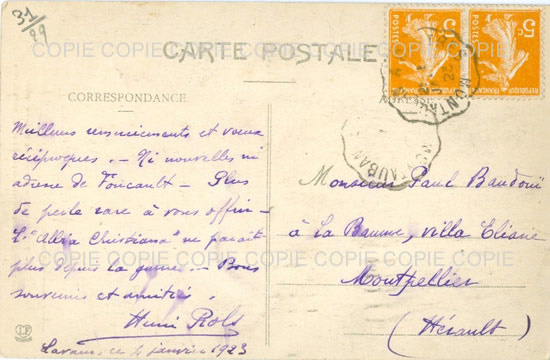 31/29
COPIE COPIE COPIE COPIE COPIE COPIE
CARTE POSTALE
5c POSTES RÉPUBLIQUE FRANÇAISE
5c POSTES RÉPUBLIQUE FRANÇAISE
MONTAUBAN
CORRESPONDANCE
Meilleurs remerciements et voeux
réciproques. - Ni nouvelles ni
adresse de Foucault - Plus
de perle rare à vous offrir -
L'"Allia Christiana" ne paraît
plus depuis la guerre - Bons
souvenirs et amitiés.
Henri Rols
Lavaur, ce 4 janvier 1923
Monsieur Paul Baudouï
à La Baume, villa Eliane
Montpellier
(Hérault)
LF